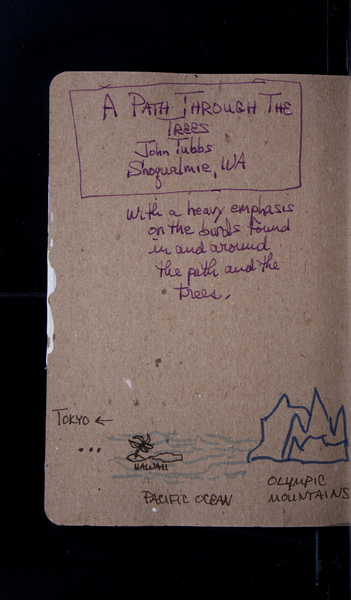 A PATH THROUGH THE
TREES
John Tubbs
Snoqualmie, WA
with a heavy emphasis
on the birds found
in and around
the path and the
trees.
TOKYO ←
...
HAWAII
PACIFIC OCEAN
OLYMPIC
MOUNTAINS